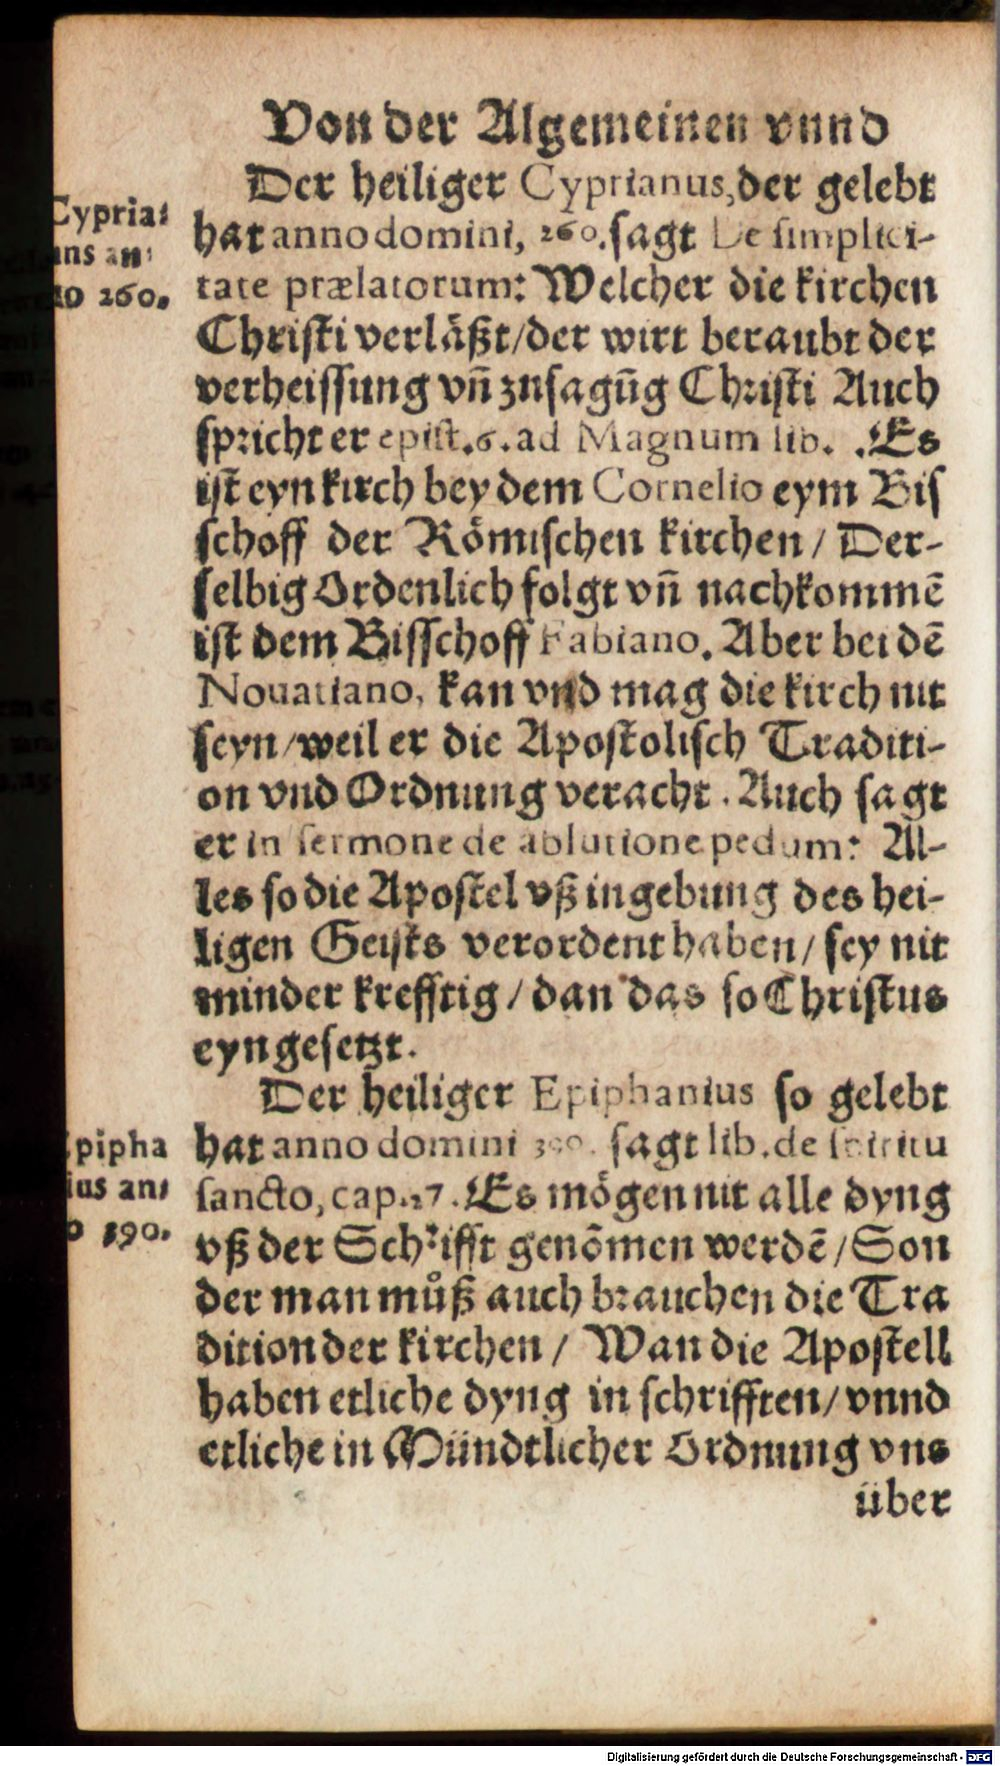 Von der Algemeinen vnnd
Der heiliger Cyprianus, der gelebt
hat anno domini, 260. sagt De simplici-
tate prælatorum: Welcher die kirchen
Christi verläßt/ der wirt beraubt der
verheissung vñ zusagũg Christi Auch
spricht er epist. 6. ad Magnum lib. . Es
ist eyn kirch bey dem Cornelio eym Bis
schoff der Römischen kirchen / Der-
selbig Ordenlich folgt vñ nachkommẽ
ist dem Bisschoff Fabiano. Aber bei dẽ
Nouatiano, kan vnd mag die kirch nit
seyn / weil er die Apostolisch Traditi-
on vnd Ordnung veracht. Auch sagt
er in sermone de ablutione pedum: Al-
les so die Apostel vß ingebung des hei-
ligen Geists verordent haben / sey nit
minder krefftig / dan das so Christus
eyngesetzt.
Der heiliger Epiphanius so gelebt
hat anno domini 390. sagt lib. de spiritu
sancto, cap. 27. Es mögen nit alle dyng
vß der Schrifft genõmen werdẽ / Son
der man můß auch brauchen die Tra
dition der kirchen / Wan die Apostell
haben etliche dyng in schrifften / vnnd
etliche in Mündtlicher Ordnung vns
über
Cypria-
nus an-
no 260.
Epipha
nius an-
no 390.
Digitalisierung gefördert durch die Deutsche Forschungsgemeinschaft - DFG